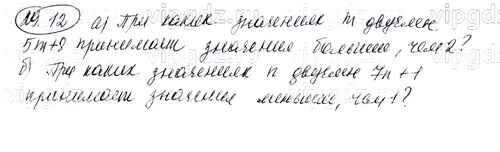 №9.12 а) При каких значениях m двучлен
5m+9 принимает значения большие, чем 2?
б) При каких значениях n двучлен 7n+1
принимает значения меньшие, чем 1?